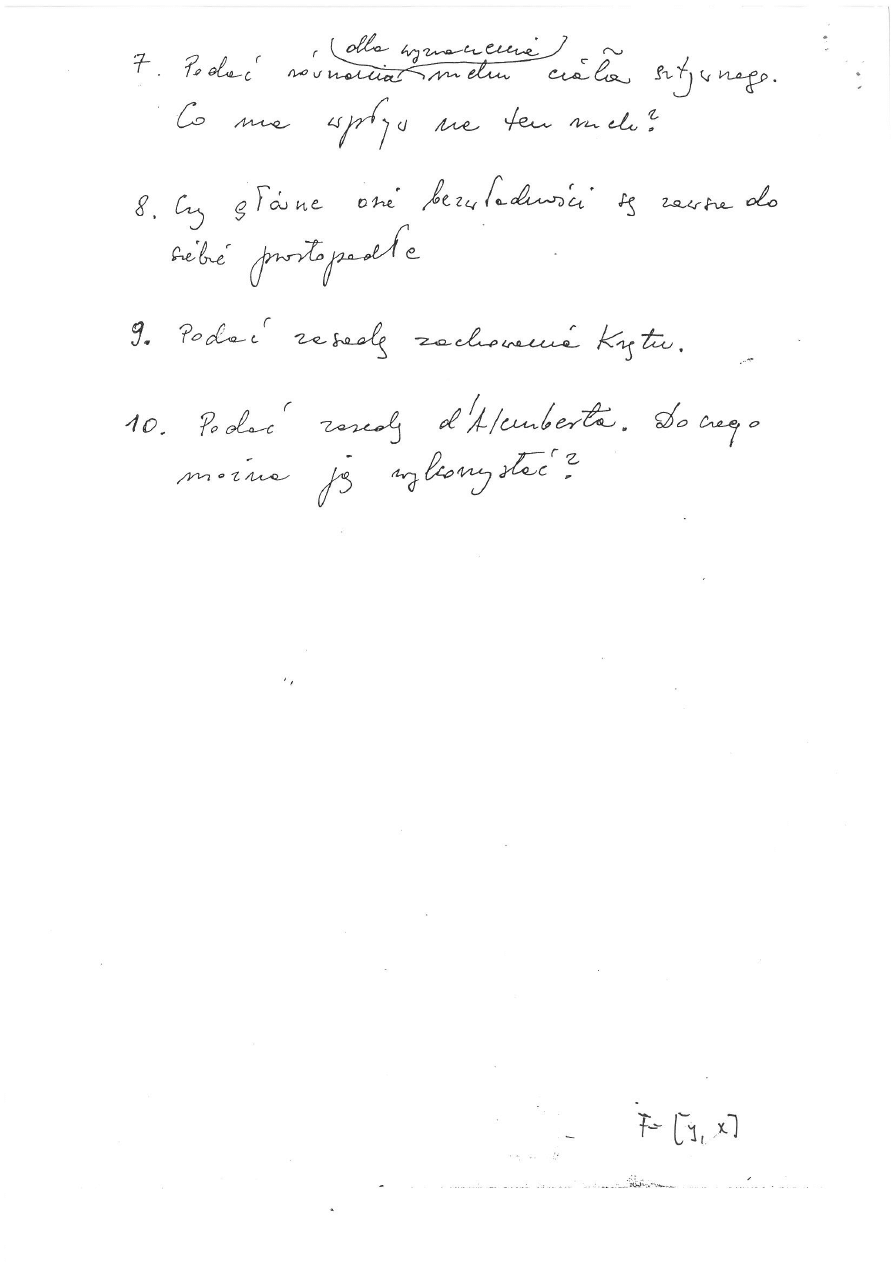 (dla wyznaczenia)
7. Podać równania ruchu ciała sztywnego.
Co ma wpływ na ten ruch?
8. Czy główne osie bezwładności są zawsze do
siebie prostopadłe
9. Podać zasadę zachowania Krętu.
10. Podać zasadę d'Alemberta. Do czego
można ją wykorzystać?
F=[y, x]